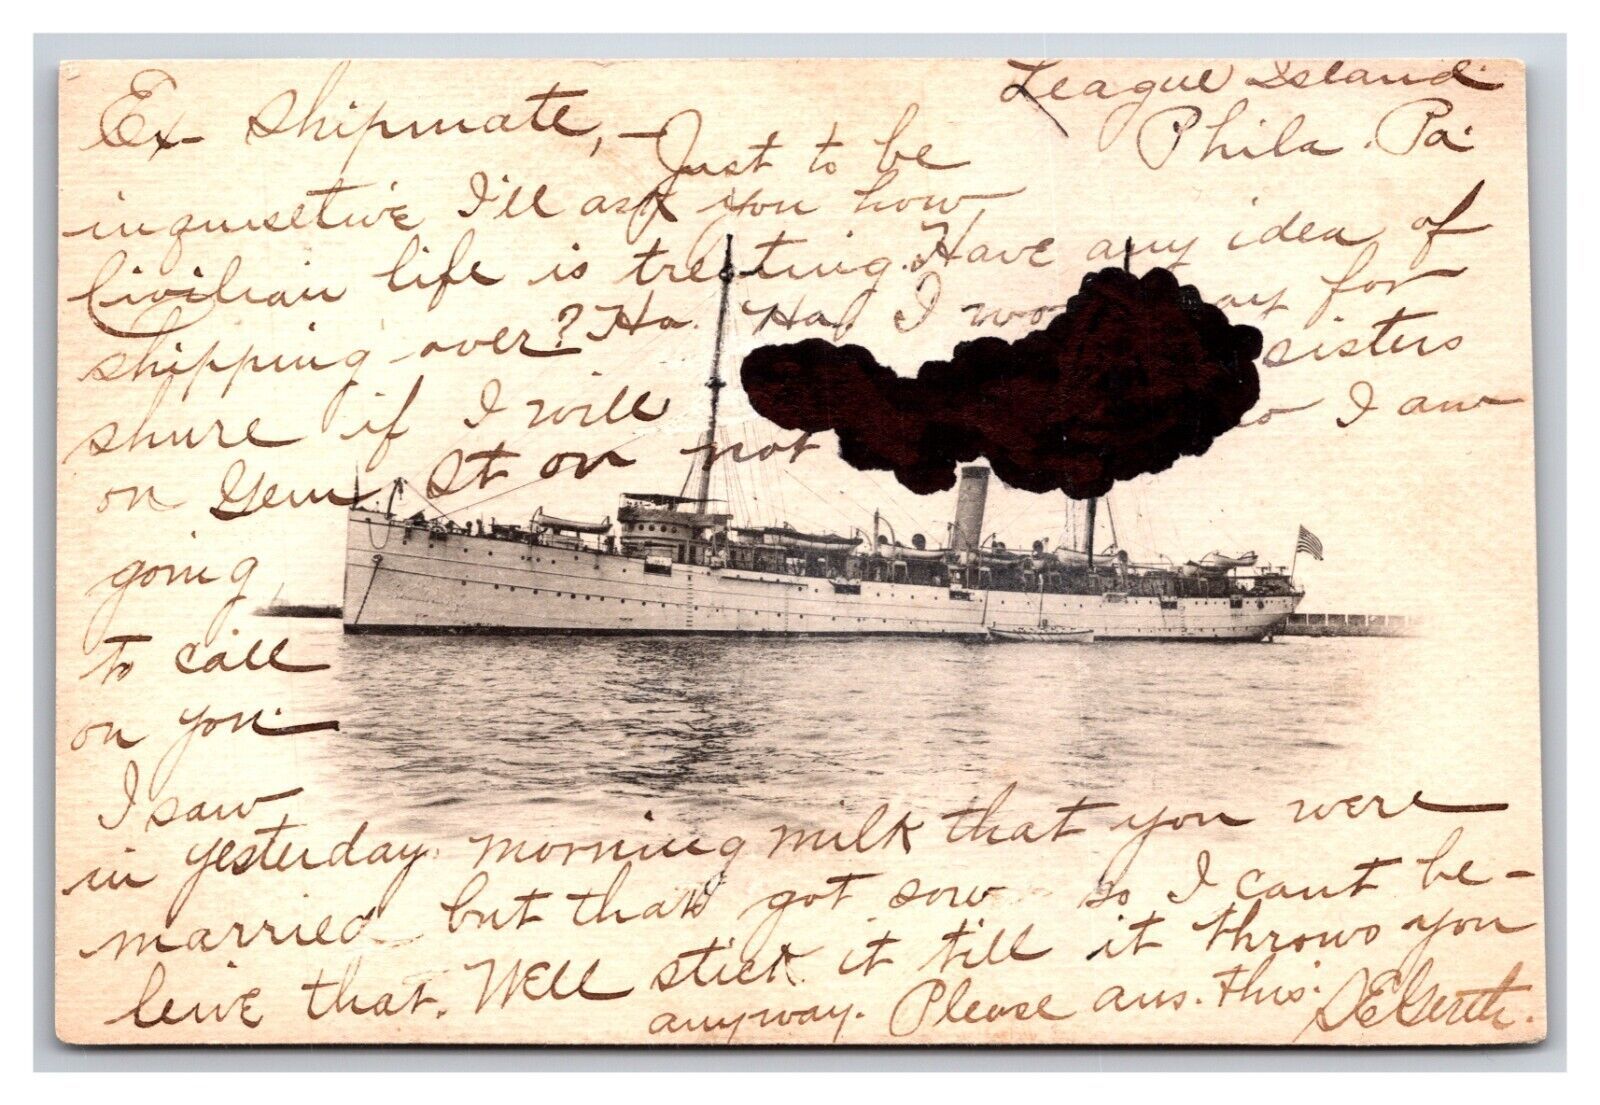 League Island
Phila. Pa.
Ex-Shipmate, - Just to be
inquisetive I'll ask you how
Civilian life is treating. Have any idea of
shipping over? Ha. Ha. I wo ay for
shure if I will sisters
on Gem. St on not o I am
going
to call
on you.
I saw
in yesterday morning milk that you were
married but that got sow so I cant be-
leive that. Well stick it till it throws you
anyway. Please ans. this.